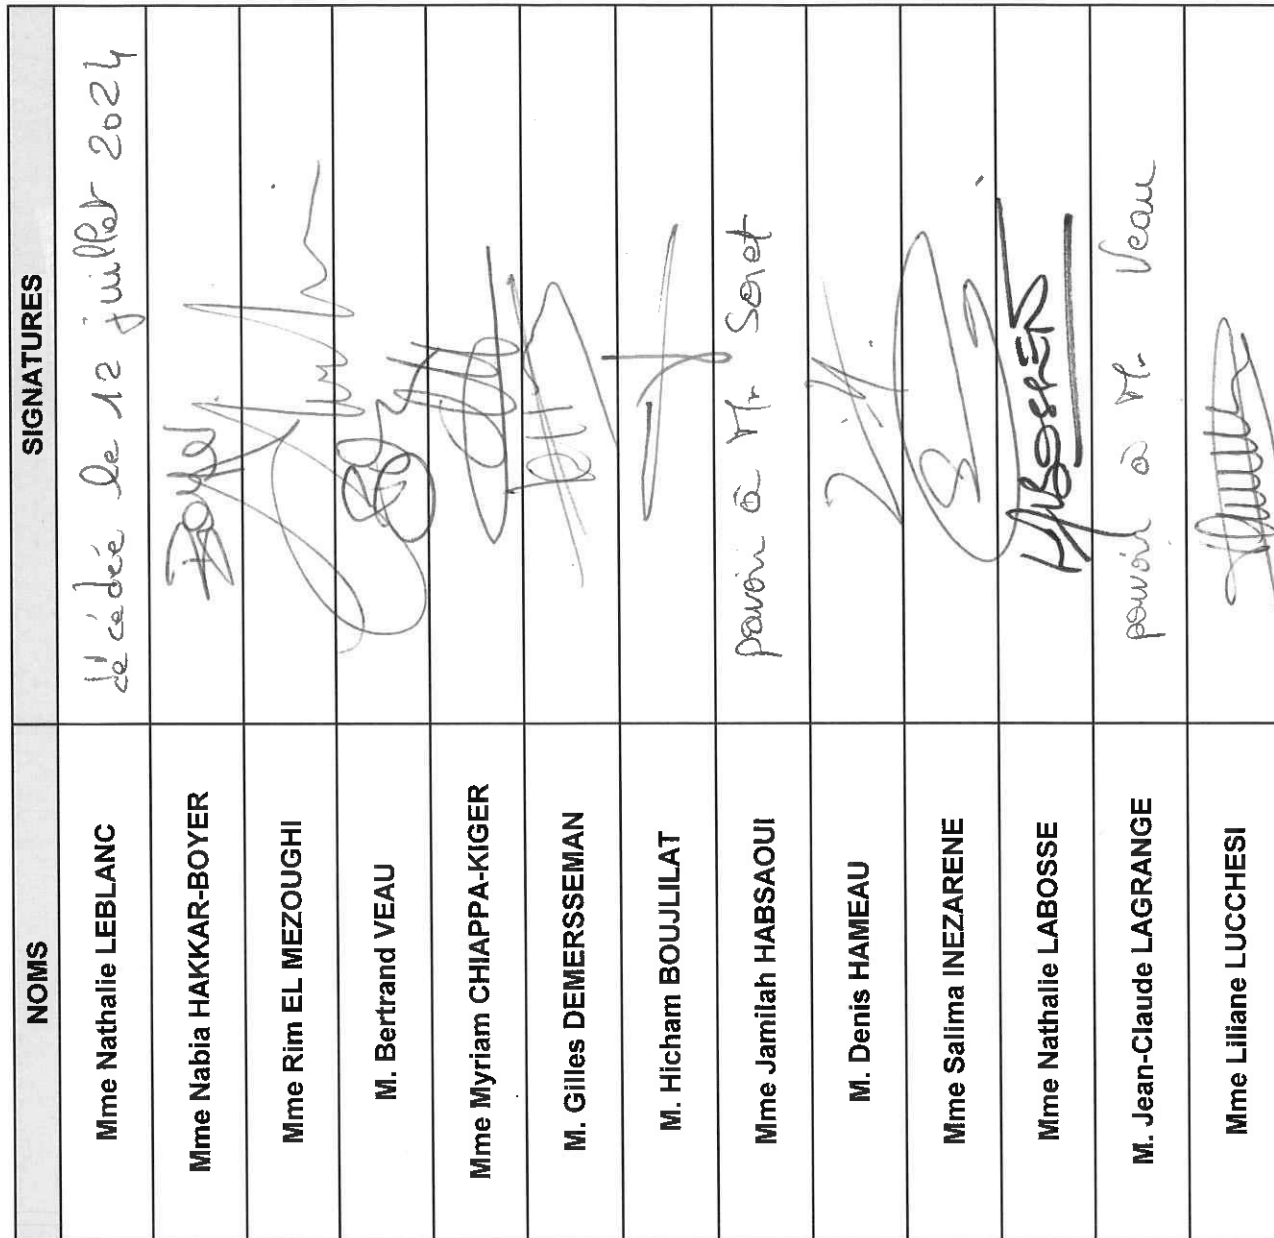 NOMS SIGNATURES
Mme Nathalie LEBLANC décédée le 12 juillet 2024
Mme Nabia HAKKAR-BOYER
Mme Rim EL MEZOUGHI
M. Bertrand VEAU
Mme Myriam CHIAPPA-KIGER
M. Gilles DEMERSSEMAN
M. Hicham BOUJLILAT
Mme Jamilah HABSAOUI pouvoir à Mr Soret
M. Denis HAMEAU
Mme Salima INEZARENE
Mme Nathalie LABOSSE
M. Jean-Claude LAGRANGE pouvoir à Mr Veau
Mme Liliane LUCCHESI